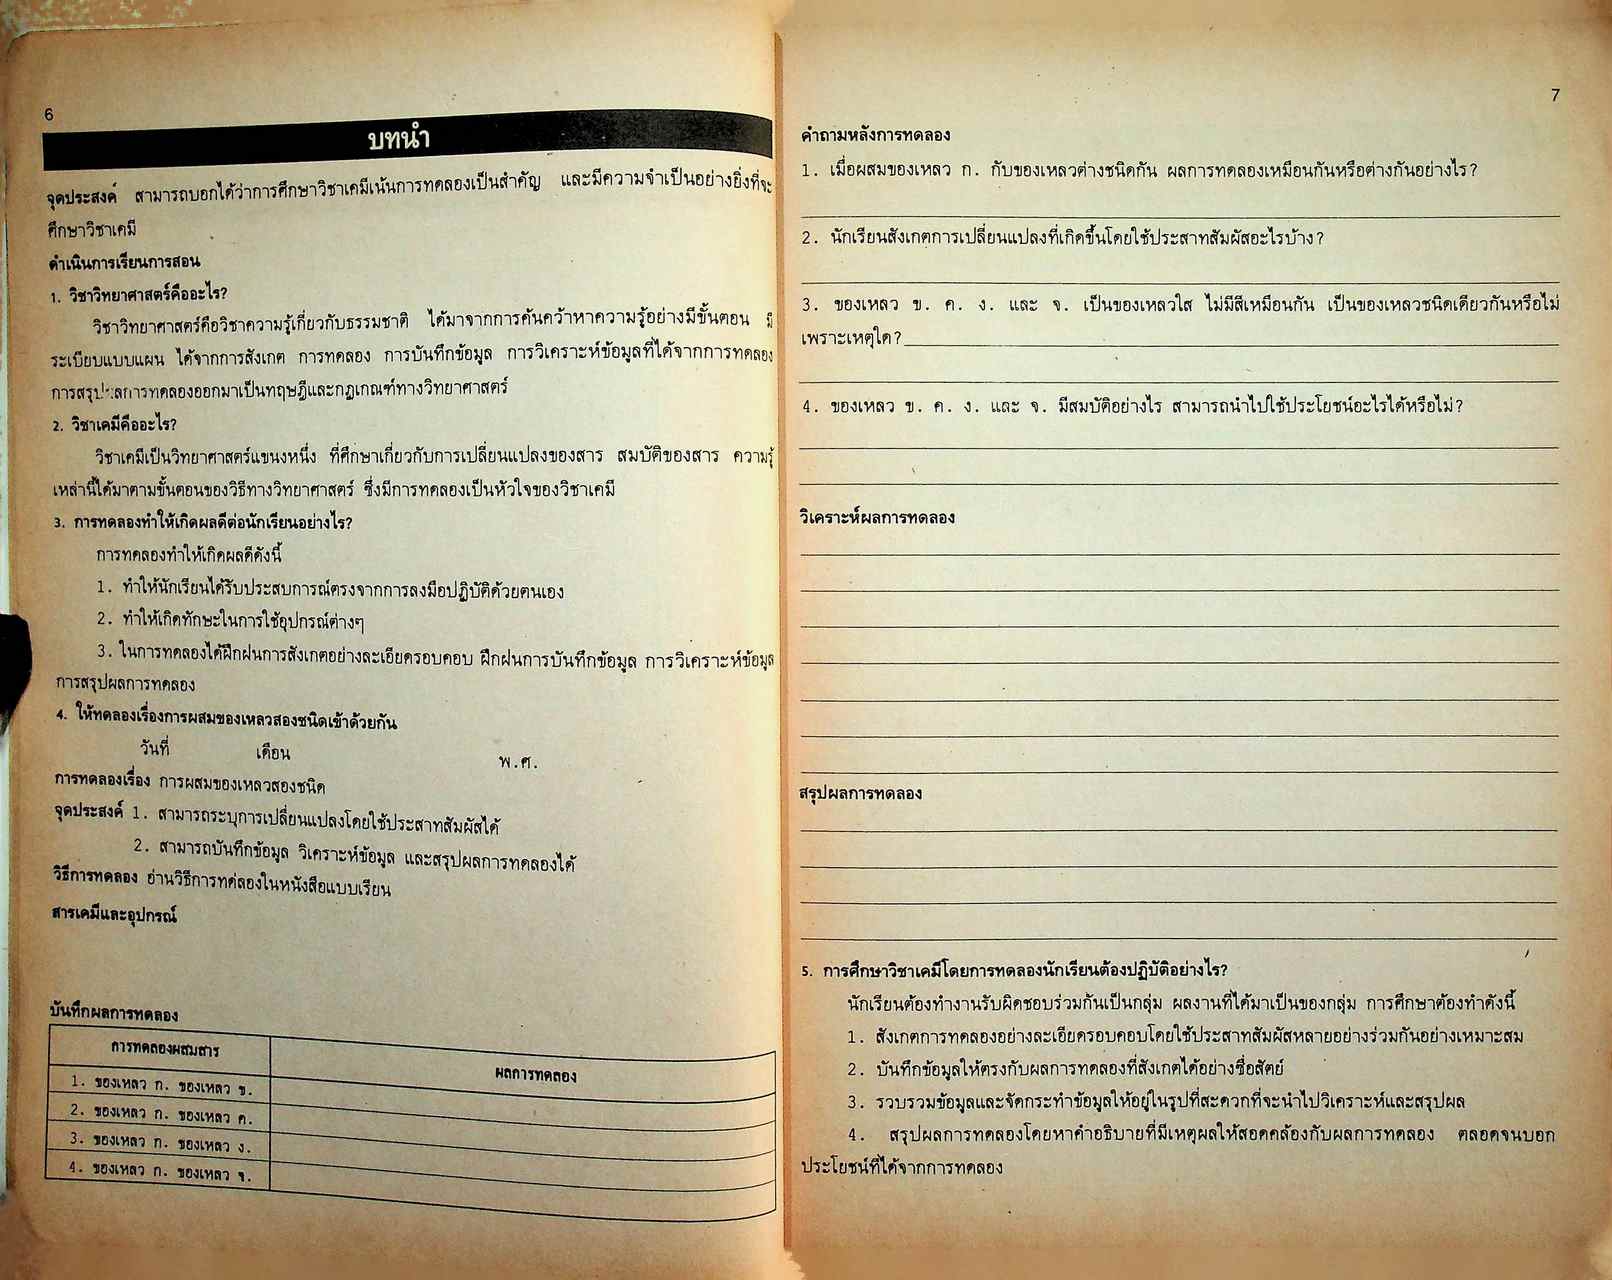 6
บทนำ
จุดประสงค์ สามารถบอกได้ว่าการศึกษาวิชาเคมีเน้นการทดลองเป็นสำคัญ และมีความจำเป็นอย่างยิ่งที่จะ
ศึกษาวิชาเคมี
ดำเนินการเรียนการสอน
1. วิชาวิทยาศาสตร์คืออะไร?
วิชาวิทยาศาสตร์คือวิชาความรู้เกี่ยวกับธรรมชาติ ได้มาจากการค้นคว้าหาความรู้อย่างมีขั้นตอน มี
ระเบียบแบบแผน ได้จากการสังเกต การทดลอง การบันทึกข้อมูล การวิเคราะห์ข้อมูลที่ได้จากการทดลอง
การสรุปผลการทดลองออกมาเป็นทฤษฎีและกฎเกณฑ์ทางวิทยาศาสตร์
2. วิชาเคมีคืออะไร?
วิชาเคมีเป็นวิทยาศาสตร์แขนงหนึ่ง ที่ศึกษาเกี่ยวกับการเปลี่ยนแปลงของสาร สมบัติของสาร ความรู้
เหล่านี้ได้มาตามขั้นตอนของวิธีทางวิทยาศาสตร์ ซึ่งมีการทดลองเป็นหัวใจของวิชาเคมี
3. การทดลองทำให้เกิดผลดีต่อนักเรียนอย่างไร?
การทดลองทำให้เกิดผลดีดังนี้
1. ทำให้นักเรียนได้รับประสบการณ์ตรงจากการลงมือปฏิบัติด้วยตนเอง
2. ทำให้เกิดทักษะในการใช้อุปกรณ์ต่างๆ
3. ในการทดลองได้ฝึกฝนการสังเกตอย่างละเอียดรอบคอบ ฝึกฝนการบันทึกข้อมูล การวิเคราะห์ข้อมูล
การสรุปผลการทดลอง
4. ให้ทดลองเรื่องการผสมของเหลวสองชนิดเข้าด้วยกัน
วันที่ เดือน พ.ศ.
การทดลองเรื่อง การผสมของเหลวสองชนิด
จุดประสงค์ 1. สามารถระบุการเปลี่ยนแปลงโดยใช้ประสาทสัมผัสได้
2. สามารถบันทึกข้อมูล วิเคราะห์ข้อมูล และสรุปผลการทดลองได้
วิธีการทดลอง อ่านวิธีการทดลองในหนังสือแบบเรียน
สารเคมีและอุปกรณ์
บันทึกผลการทดลอง
การทดลองผสมสาร ผลการทดลอง
1. ของเหลว ก. ของเหลว ข.
2. ของเหลว ก. ของเหลว ค.
3. ของเหลว ก. ของเหลว ง.
4. ของเหลว ก. ของเหลว จ.
7
คำถามหลังการทดลอง
1. เมื่อผสมของเหลว ก. กับของเหลวต่างชนิดกัน ผลการทดลองเหมือนกันหรือต่างกันอย่างไร?
2. นักเรียนสังเกตการเปลี่ยนแปลงที่เกิดขึ้นโดยใช้ประสาทสัมผัสอะไรบ้าง?
3. ของเหลว ข. ค. ง. และ จ. เป็นของเหลวใส ไม่มีสีเหมือนกัน เป็นของเหลวชนิดเดียวกันหรือไม่
เพราะเหตุใด?
4. ของเหลว ข. ค. ง. และ จ. มีสมบัติอย่างไร สามารถนำไปใช้ประโยชน์อะไรได้หรือไม่?
วิเคราะห์ผลการทดลอง
สรุปผลการทดลอง
5. การศึกษาวิชาเคมีโดยการทดลองนักเรียนต้องปฏิบัติอย่างไร?
นักเรียนต้องทำงานรับผิดชอบร่วมกันเป็นกลุ่ม ผลงานที่ได้มาเป็นของกลุ่ม การศึกษาต้องทำดังนี้
1. สังเกตการทดลองอย่างละเอียดรอบคอบโดยใช้ประสาทสัมผัสหลายอย่างร่วมกันอย่างเหมาะสม
2. บันทึกข้อมูลให้ตรงกับผลการทดลองที่สังเกตได้อย่างซื่อสัตย์
3. รวบรวมข้อมูลและจัดกระทำข้อมูลให้อยู่ในรูปที่สะดวกที่จะนำไปวิเคราะห์และสรุปผล
4. สรุปผลการทดลองโดยหาคำอธิบายที่มีเหตุผลให้สอดคล้องกับผลการทดลอง ตลอดจนบอก
ประโยชน์ที่ได้จากการทดลอง